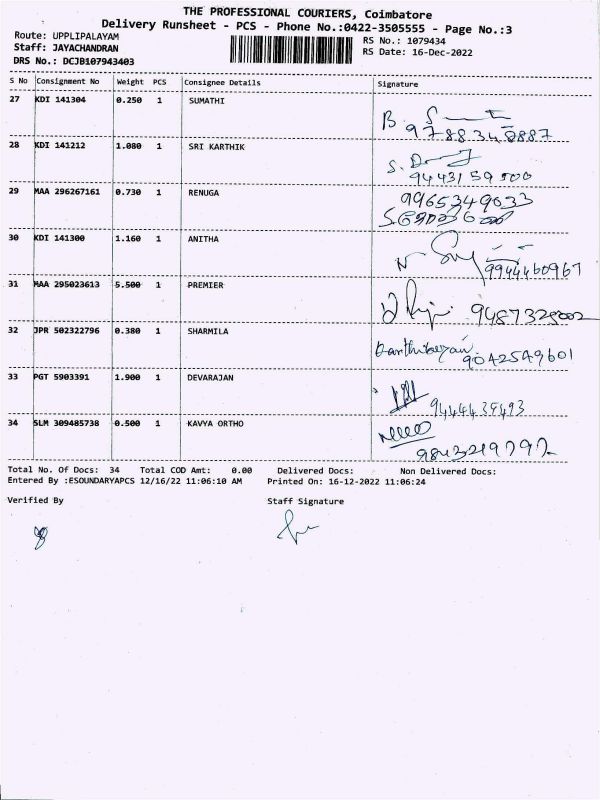 THE PROFESSIONAL COURIERS, Coimbatore
Delivery Runsheet - PCS - Phone No.:0422-3505555 - Page No.:3
Route: UPPLIPALAYAM
RS No.: 1079434
Staff: JAYACHANDRAN
RS Date: 16-Dec-2022
DRS No.: DCJB107943403
S No Consignment No Weight PCS Consignee Details Signature
27 KDI 141304 0.250 1 SUMATHI
B.
28 KDI 141212 1.080 1 SRI KARTHIK
S.
9443159500
29 MAA 296267161 0.730 1 RENUGA
9965349033
30 KDI 141300 1.160 1 ANITHA
N
9944460967
31 MAA 295023613 5.500 1 PREMIER
32 JPR 502322796 0.380 1 SHARMILA
9042549601
33 PGT 5903391 1.900 1 DEVARAJAN
34 SLM 309485738 0.500 1 KAVYA ORTHO
Total No. Of Docs: 34 Total COD Amt: 0.00 Delivered Docs: Non Delivered Docs:
Entered By :ESOUNDARYAPCS 12/16/22 11:06:10 AM Printed On: 16-12-2022 11:06:24
Verified By Staff Signature